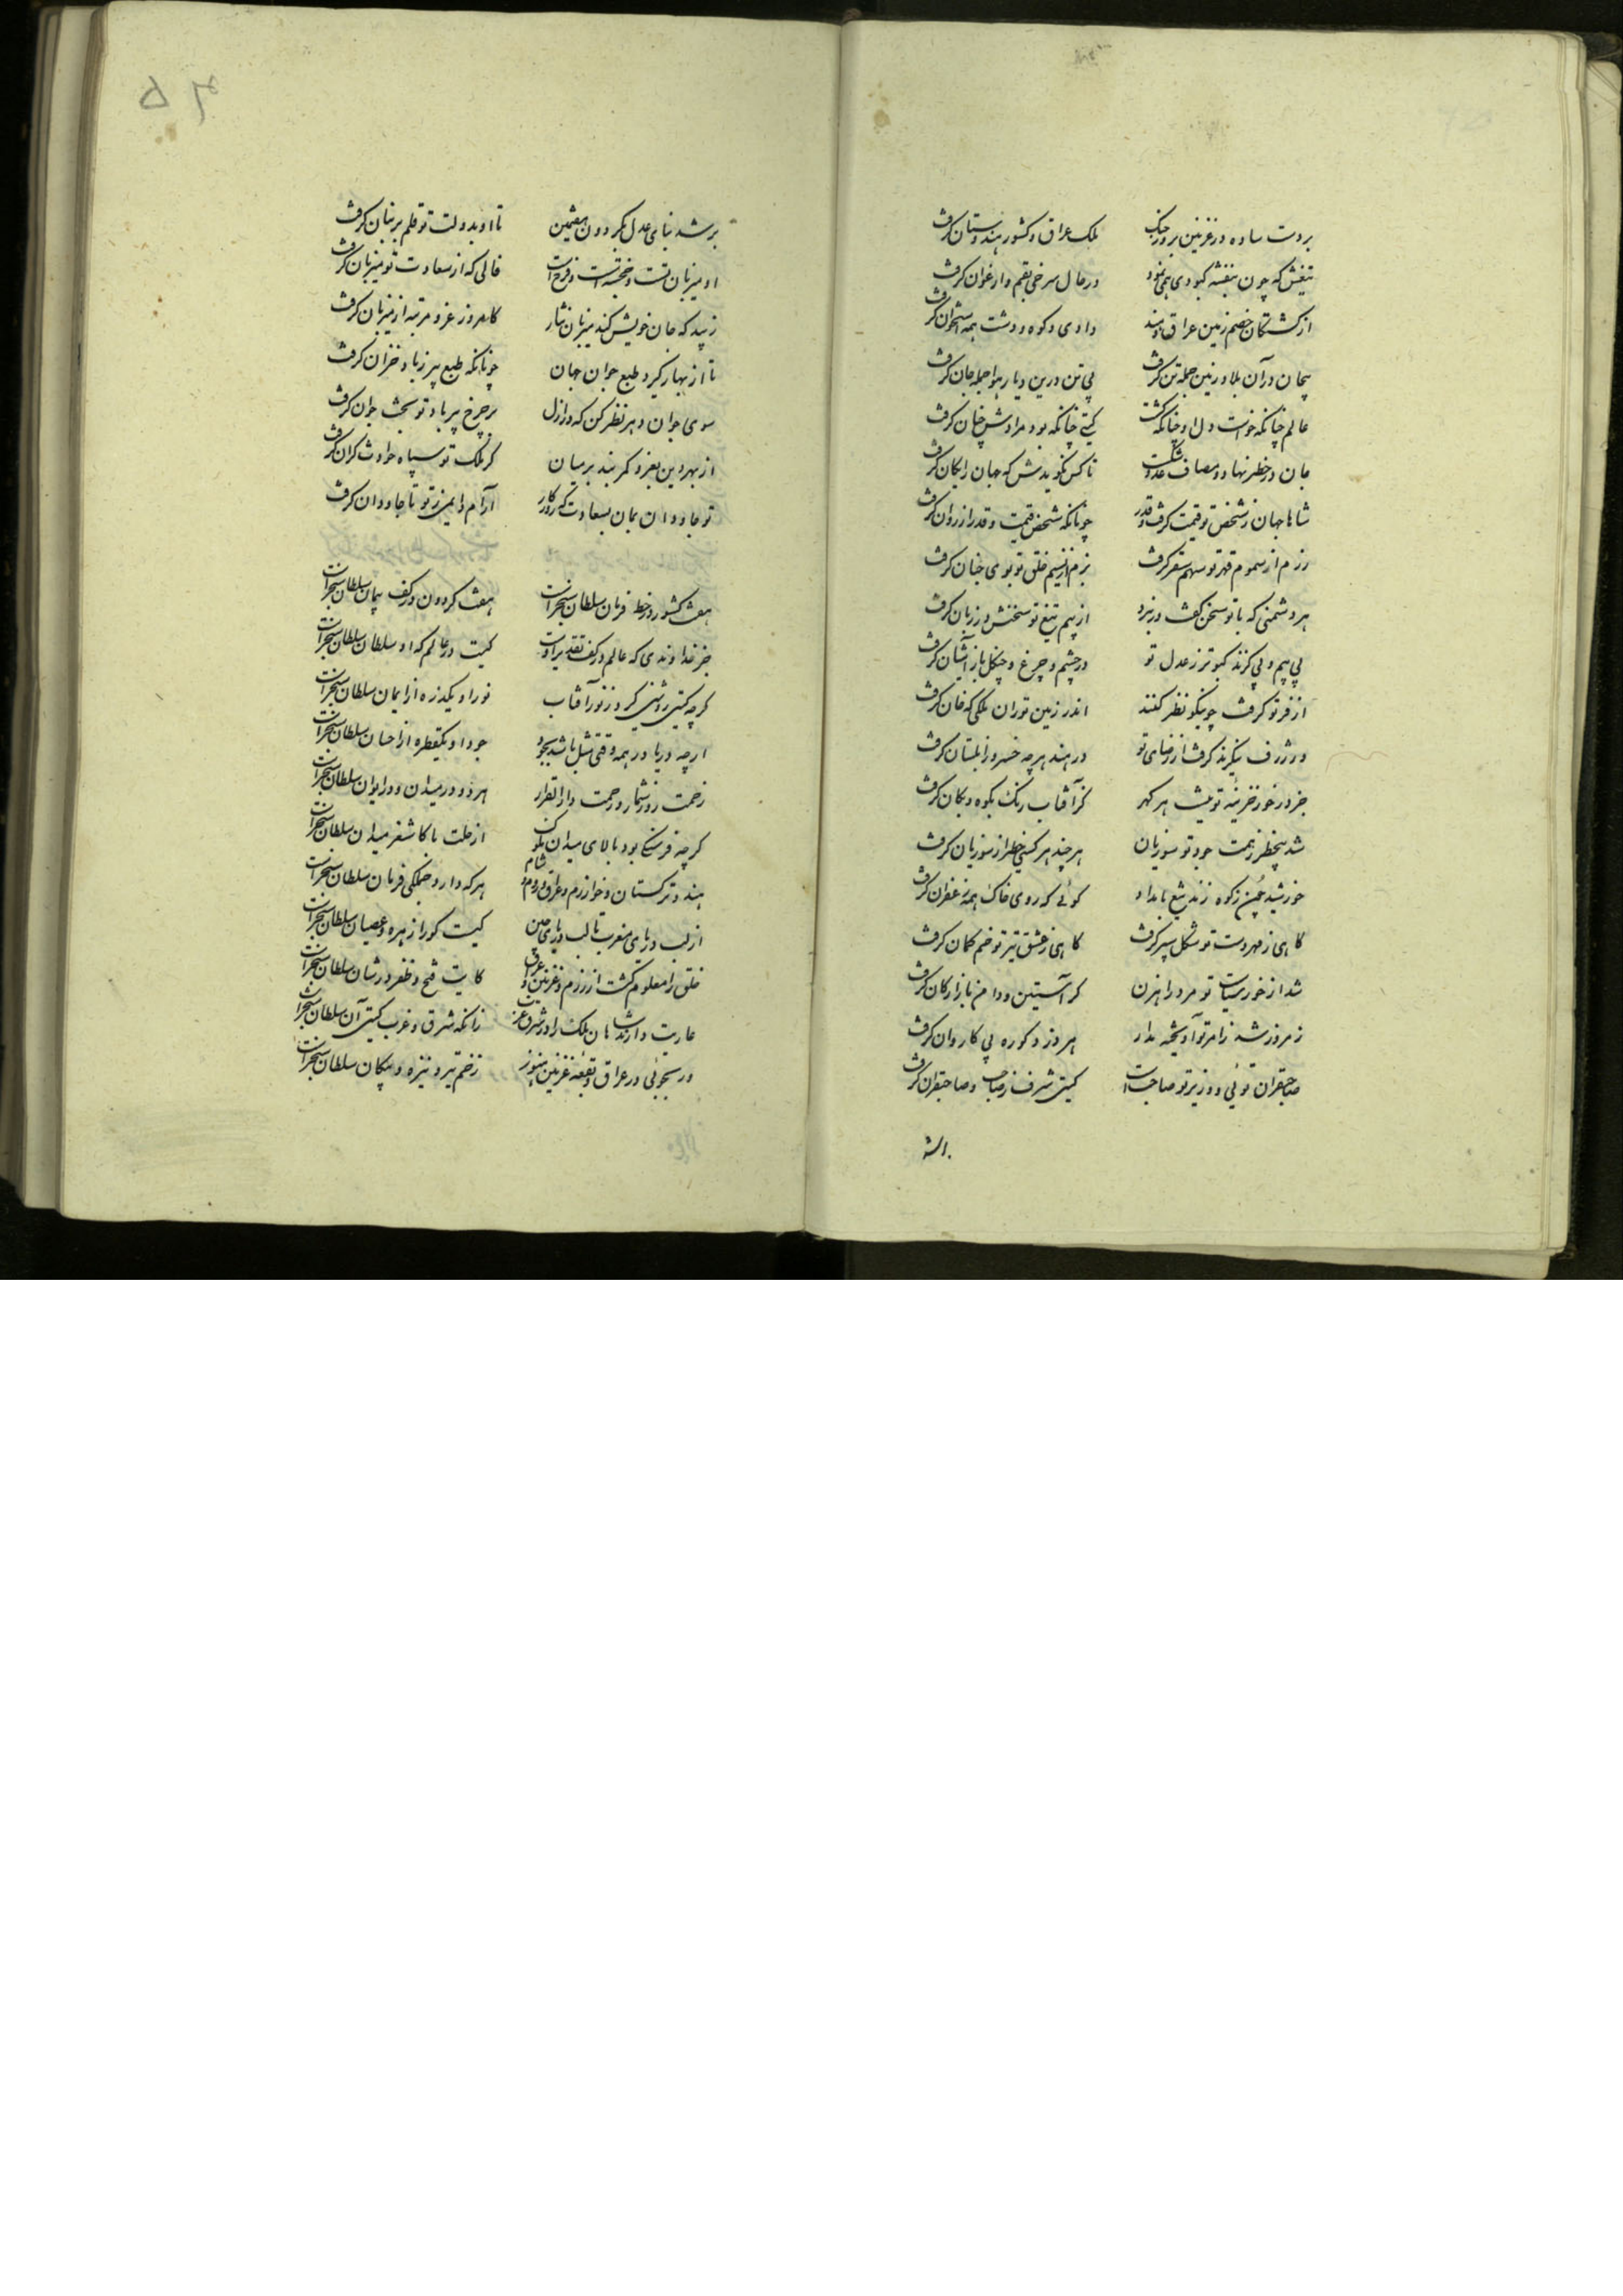 بر دست ساوه در غزنین بروز جنگ ملک عراق و کشور هندوستان گرفت
تیغش که چون بنفشه کبودی همی نمود در حال سرخی بقم و ارغوان گرفت
از کشتگان خصم زمین عراق و هند وادی و کوه و دشت همه استخوان گرفت
بیجان در آن بلاد زمین جمله تن گرفت بی تن درین دیار هوا جمله جان گرفت
عالم چنانکه خواست دل او چنانکه گشت گیتی چنانکه بود مرادش چنان گرفت
جان در خطر نهاد و مصاف عدو شکست تا کس نگویدش که جهان رایگان گرفت
شاها جهان ز شخص تو قیمت گرفت و قدر چونانکه شخص قیمت و قدر از روان گرفت
رزم از سموم قهر تو سهم سقر گرفت بزم از نسیم خلق تو بوی جنان گرفت
هر دشمنی که با تو سخن گفت در نبرد از بیم تیغ تو سخنش در زبان گرفت
بی بیم و بی گزند کبوتر ز عدل تو در چشم و چرغ و چنگل باز آشیان گرفت
از فر تو گرفت چو نیکو نظر کنند اندر زمین توران ملکی که خان گرفت
ور ژرف بنگرند گرفت از رضای تو در هند هر چه خسرو زابلستان گرفت
جز در خور خزینه تو نیست هر گهر کز آفتاب رنگ بکوه و بکان گرفت
شد بیخطر ز همت جود تو سوزیان هر چند هر کسی خطر از سوزیان گرفت
خورشید چمن ز کوه زند تیغ بامداد گوئی که روی خاک همه زعفران گرفت
گاهی ز مهر دست تو شکل سپر گرفت گاهی ز عشق تیر تو خم کمان گرفت
شد از خور سیاست تو مرد راهزن کز آستین و دامن بازارگان گرفت
ز مرد زشد ز امر تو آویخته بدار هر دزد کو ره بی کاروان گرفت
صاحبقران توئی و وزیر تو صاحب است گیتی شرف ز صاحب و صاحبقران گرفت
بر شد بنای عدل بگردون هفتمین تا او بدولت تو قلم بر بنان گرفت
او میزبان تست و خجسته است و فرخ است فالی که از سعادت تو میزبان گرفت
زیبد که جان خویش کند میزبان نثار کامروز عز و مرتبه از میزبان گرفت
تا از بهار گیرد طبع جوان جهان چونانکه طبع پیر ز باد خزان گرفت
سوی جوان دهر نظر کن که در ازل بر چرخ پیر باد تو بخت جوان گرفت
از بهر دین بعز و کمر بند بر میان کز ملک تو سپاه حوادث کران گرفت
تو جاودان بمان بسعادت که روزگار آرام و ایمنی ز تو تا جاودان گرفت
هفت کشور در خط فرمان سلطان سنجر است هفت گردون در کف پیمان سلطان سنجر است
جز خداوندی که عالم در کف تقدیر اوست کیست در عالم که او سلطان سلطان سنجر است
گرچه گیتی روشنی گیرد ز نور آفتاب نور او یکذره از ایمان سلطان سنجر است
ارچه دریا در همه وقتی مثل باشد بجود جود او یکقطره از احسان سلطان سنجر است
زحمت روز شمار و رحمت دار القرار هر دو در میدان و در ایوان سلطان سنجر است
گرچه فرسنگی بود بالای میدان ملوک از حلب تا کاشغر میدان سلطان سنجر است
هند و ترکستان و خوارزم و عراق و روم و شام هر که دارد جملگی فرمان سلطان سنجر است
از لب دریای مغرب تا لب دریای چین کیست کو را زهره عصیان سلطان سنجر است
خلق را معلوم گشت از رزم غزنین و عراق کایت فتح و ظفر در شان سلطان سنجر است
عاریت دارند شاهان ملک را در شرق و غرب زانکه شرق و غرب گیتی آن سلطان سنجر است
ور بجوئی در عراق و بقعه غزنین هنوز زخم تیر و نیزه و پیکان سلطان سنجر است